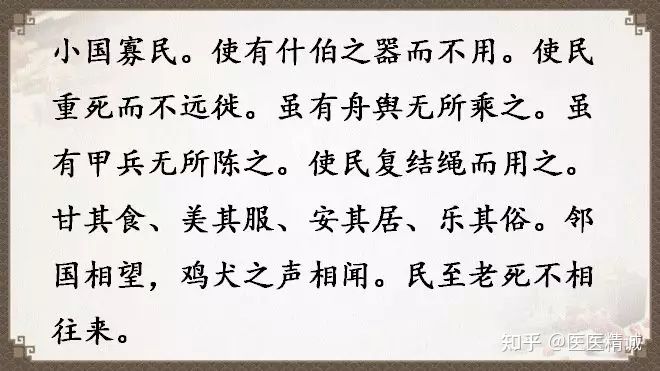 小国寡民。使有什伯之器而不用。使民
重死而不远徙。虽有舟舆无所乘之。虽
有甲兵无所陈之。使民复结绳而用之。
甘其食、美其服、安其居、乐其俗。邻
国相望，鸡犬之声相闻。民至老死不相
往来。
知乎 @医医精诚